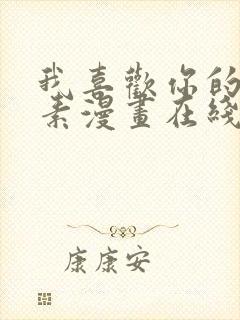 我喜歡你的
素漫畫在綫
康康安